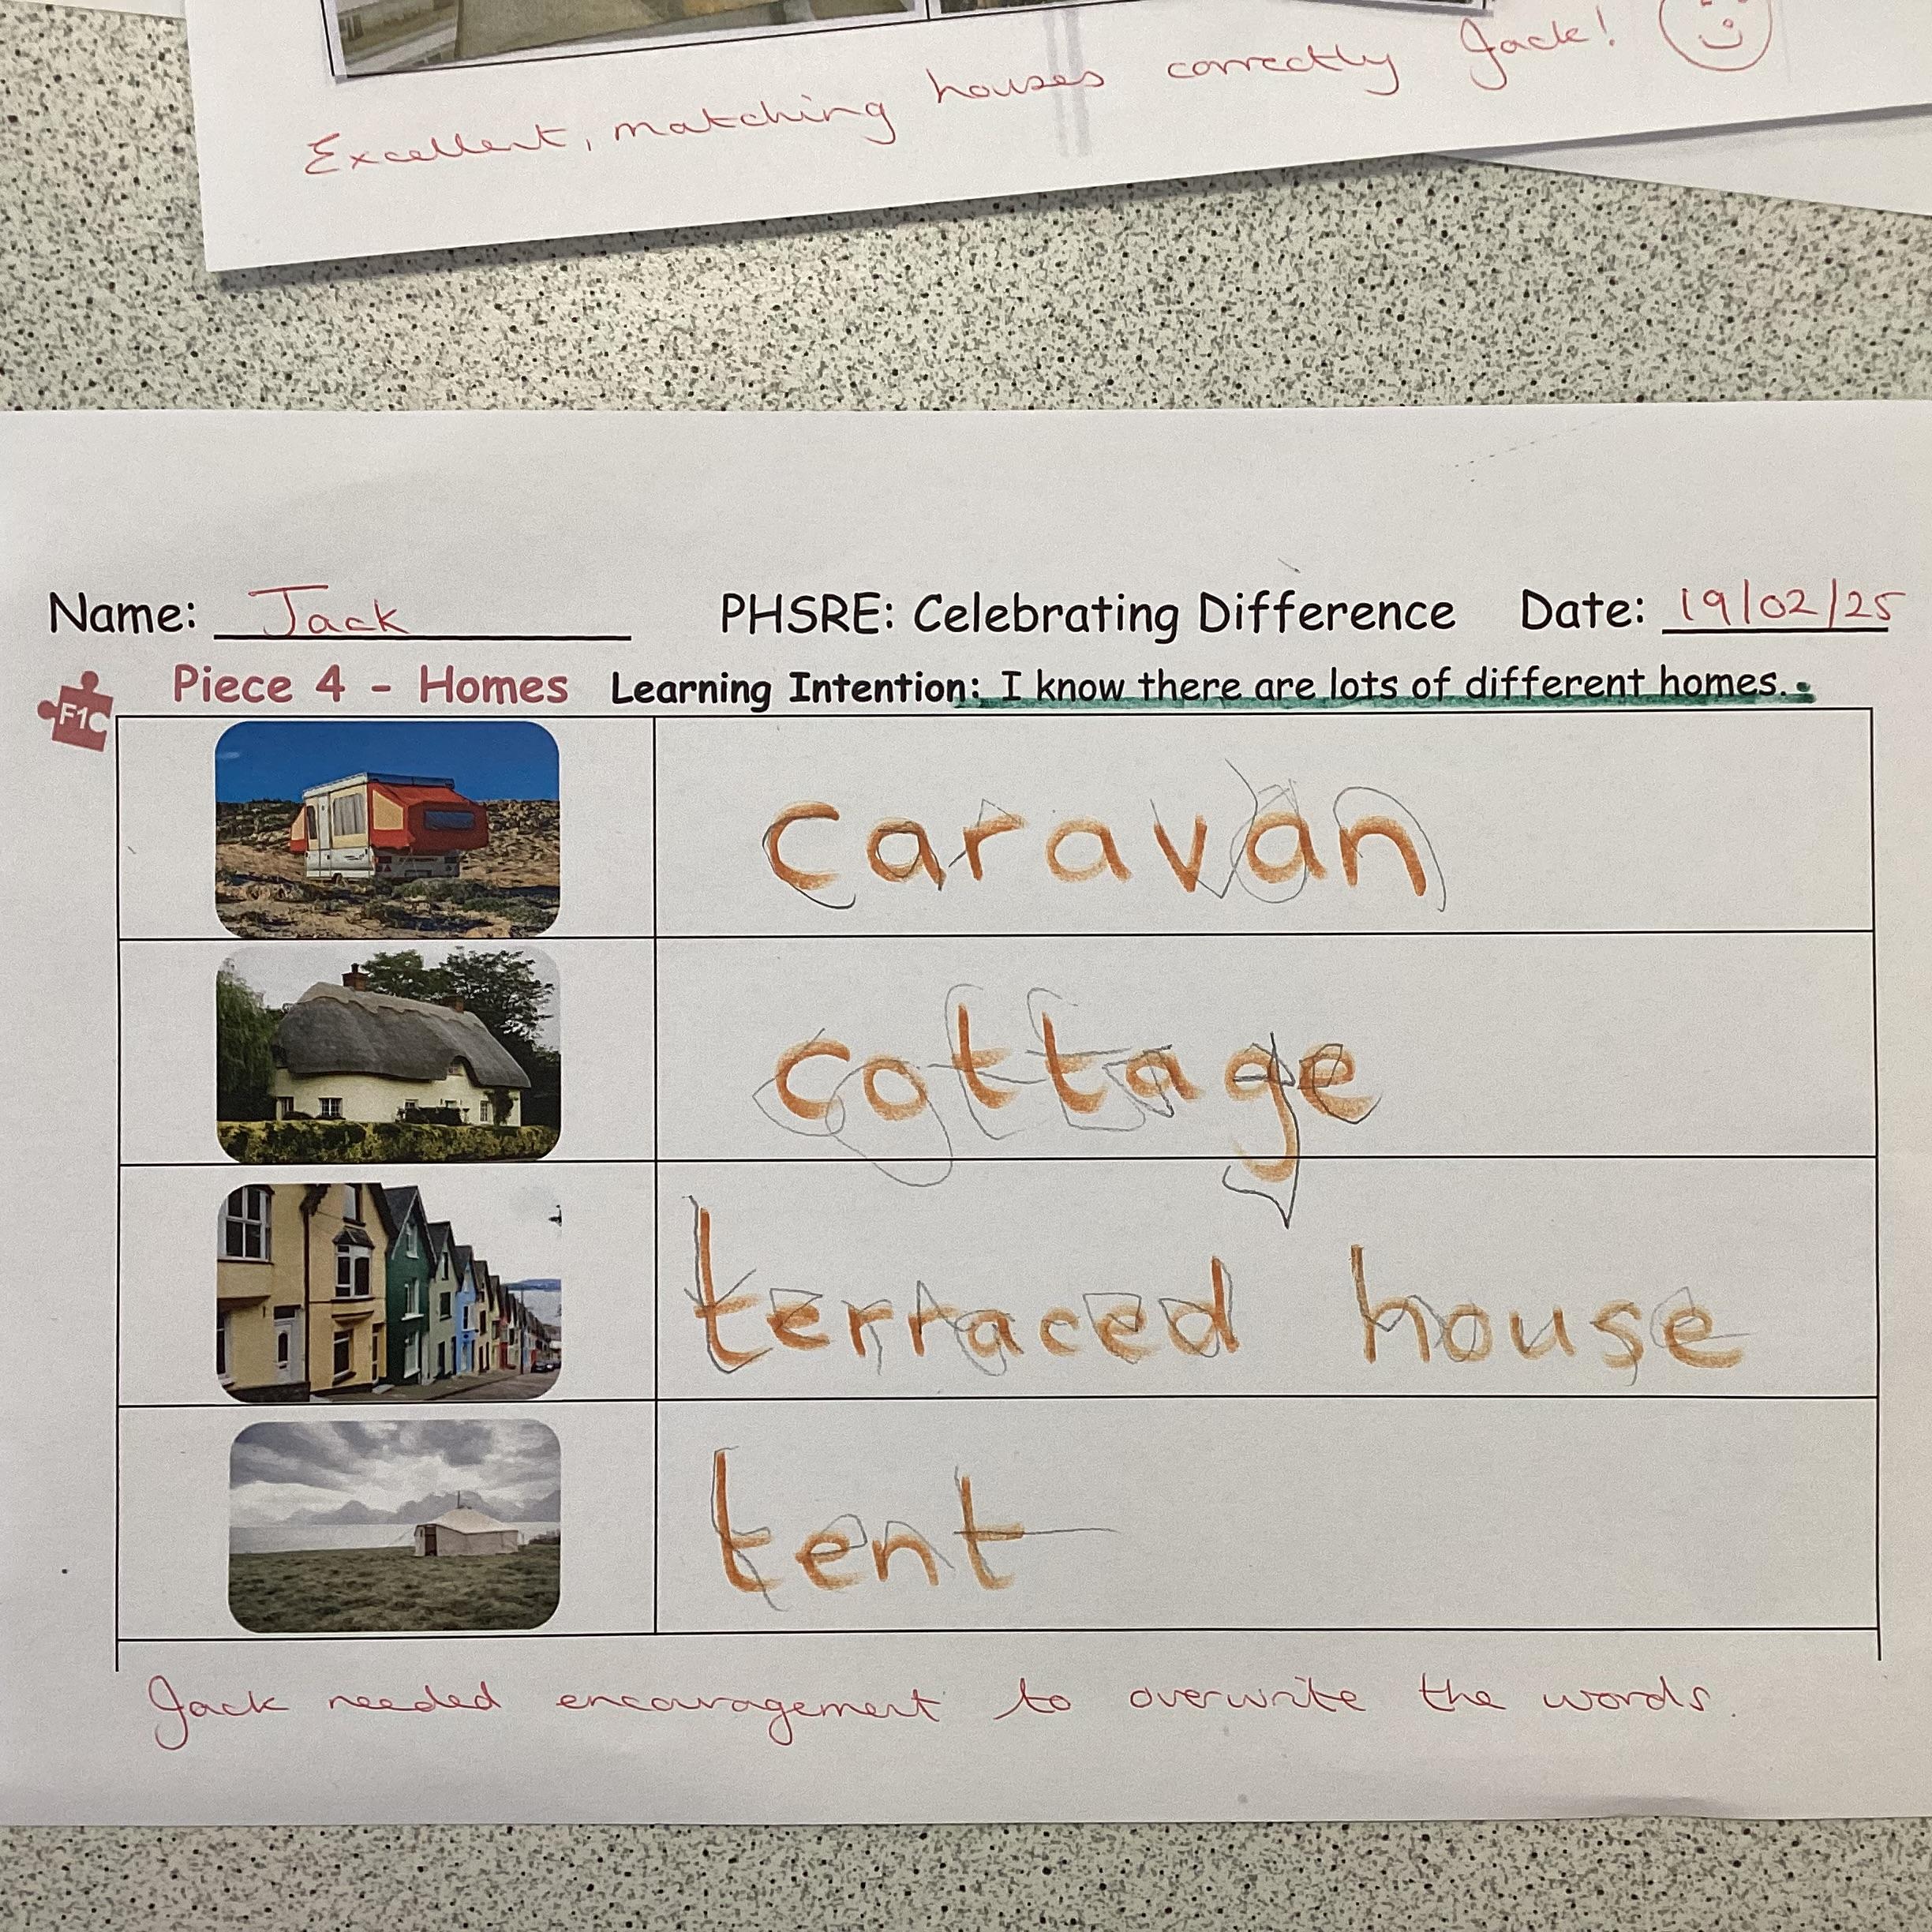 Excellent, matching houses correctly Jack!
Name: Jack PHSRE: Celebrating Difference Date: 19/02/25
F1C Piece 4 - Homes Learning Intention: I know there are lots of different homes.
caravan
cottage
terraced house
tent
Jack needed encouragement to overwrite the words.